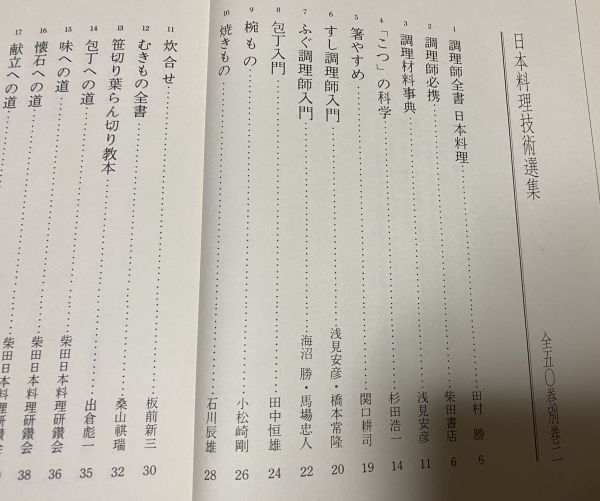 日本料理技術選集
全五〇巻別巻二
1 調理師全書 日本料理……田村 勝 5
2 調理師必携……柴田書店 6
3 調理材料事典……浅見安彦 11
4 「こつ」の科学……杉田浩一 14
5 箸やすめ……関口耕司 19
6 すし調理師入門……浅見安彦・橋本常隆 20
7 ふぐ調理師入門……海沼 勝・馬場忠人 22
8 包丁入門……田中恒雄 24
9 椀もの……小松崎剛 26
10 焼きもの……石川辰雄 28
11 炊合せ……板前新三 30
12 むきもの全書
13 笹切り葉らん切り教本……桑山祺瑞 32
14 包丁への道……出倉彪一 35
15 味への道……柴田日本料理研鑽会 36
16 懐石への道……柴田日本料理研鑽会 38
17 献立への道……柴田日本料理研鑽会